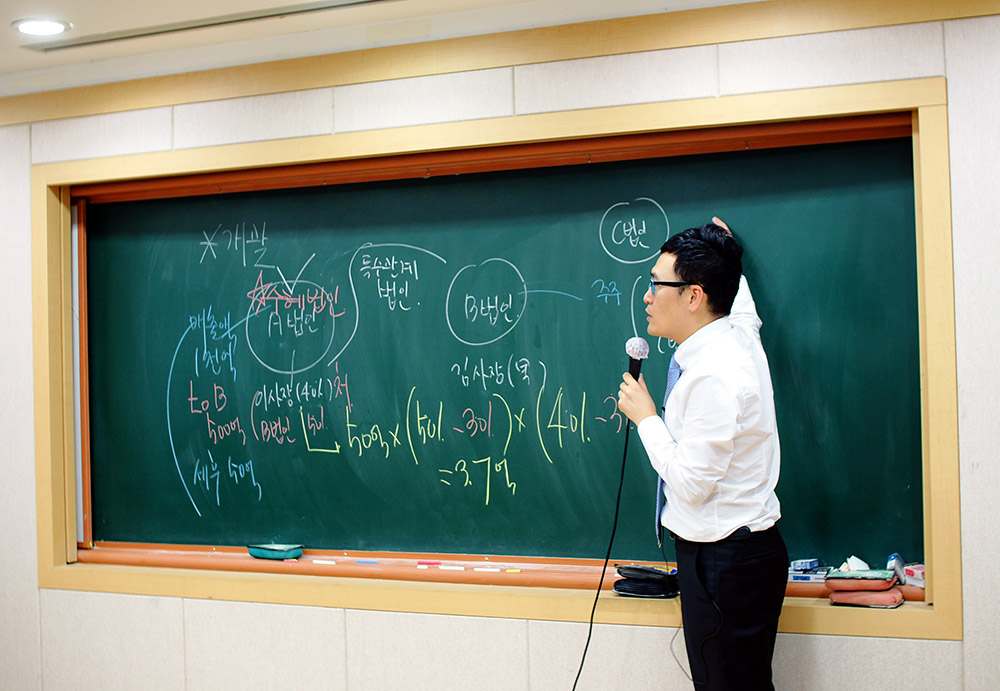 *개괄
수혜법인
A법인
매출액
1천억
to B
500억
세후 50억
이사장(40%)
B법인 50%
특수관계
법인
B법인
김사장(
C법인
주주
50억×(50%-30%)×(40%-3
=3.7억